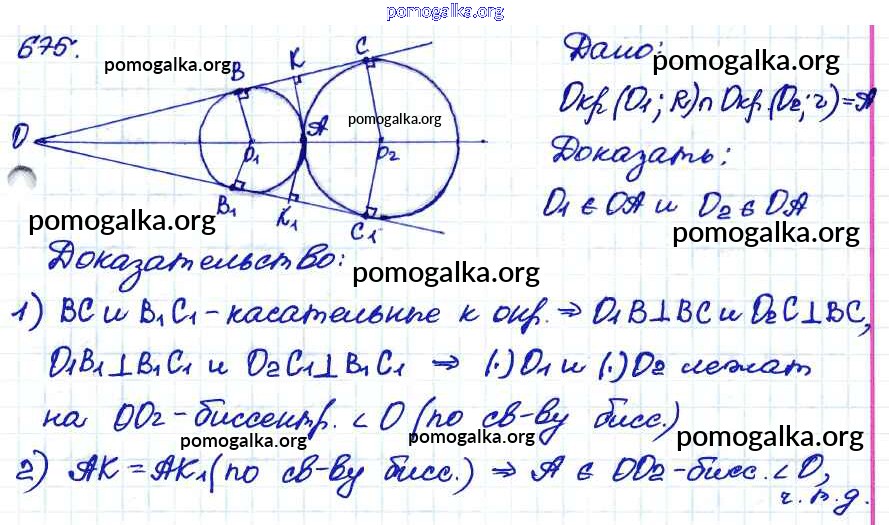 pomogalka.org
675.
pomogalka.org
B
K
C
Дано:
pomogalka.org
O
A
pomogalka.org
O₁
O₂
Окр.(O₁; R)∩Окр.(O₂; r)=A
Доказать:
B₁
K₁
C₁
O₁ ∈ OA и O₂ ∈ OA
pomogalka.org
pomogalka.org
Доказательство:
pomogalka.org
1) BC и B₁C₁ - касательные к окр. ⇒ O₁B⊥BC и O₂C⊥BC,
O₁B₁⊥B₁C₁ и O₂C₁⊥B₁C₁ ⇒ (·)O₁ и (·)O₂ лежат
на OO₂ - биссектр. ∠O (по св-ву бисс.)
pomogalka.org
pomogalka.org
pomogalka.org
2) AK = AK₁ (по св-ву бисс.) ⇒ A ∈ OO₂ - бисс. ∠O,
ч.т.д.
pomogalka.org
pomogalka.org